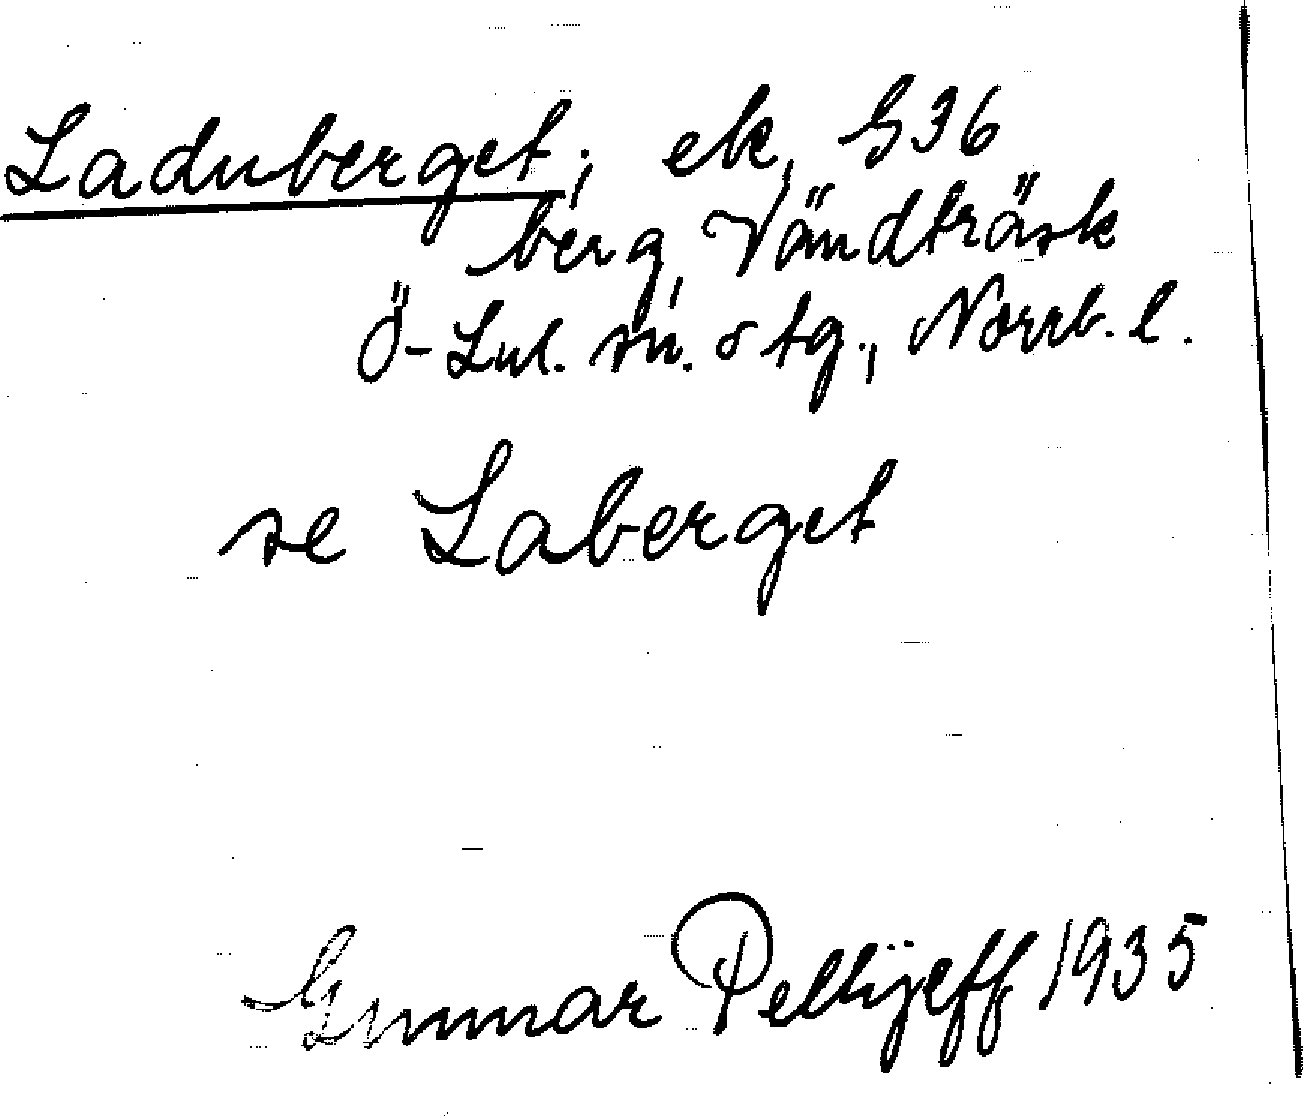 Laduberget; ek, G36
berg, Vändträsk
Ö-Lul. sn. o tg., Norrb. l.
se Laberget
Gunnar Pellijeff 1935